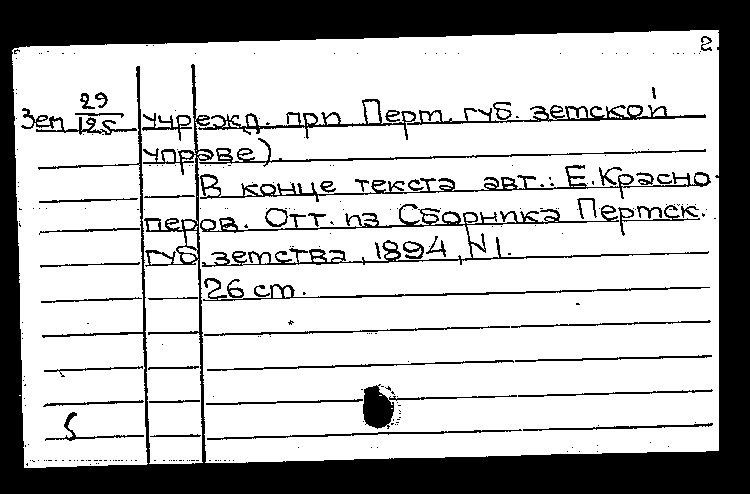 2.
Зем 29/125 учрежд. при Перм. губ. земской
управе).
В конце текста авт.: Е. Красно-
перов. Отт. из Сборника Пермск.
губ. земства, 1894, №1.
26 cm.
5